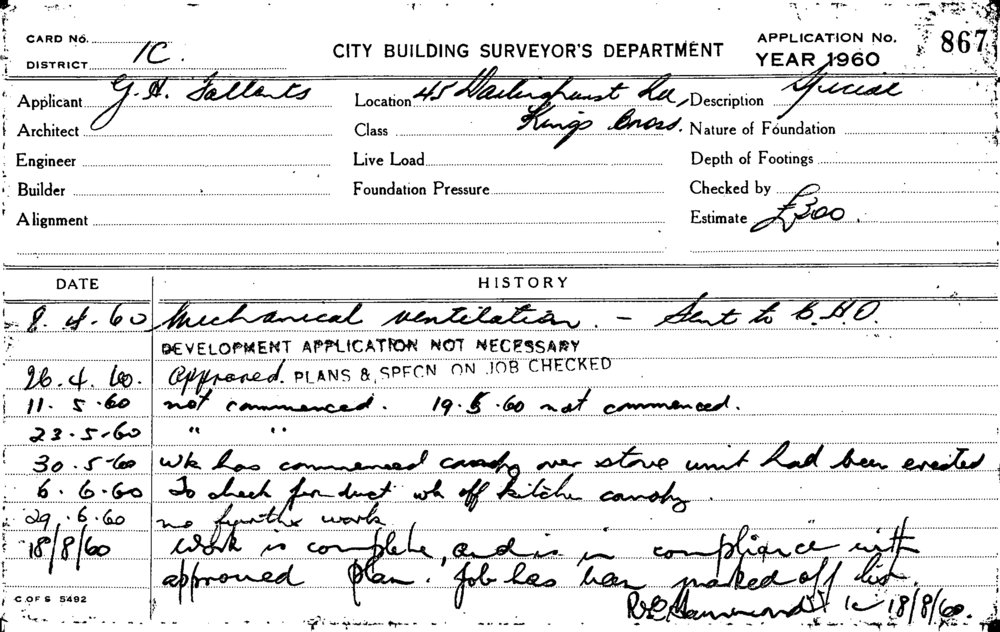 CARD No.
DISTRICT 1C.
CITY BUILDING SURVEYOR'S DEPARTMENT
APPLICATION No. 867
YEAR 1960
Applicant G. H. Tallents
Location 45 Darlinghurst Rd, Kings Cross.
Description Special
Architect
Class
Nature of Foundation
Engineer
Live Load
Depth of Footings
Builder
Foundation Pressure
Checked by
Alignment
Estimate £300
DATE HISTORY
8. 4. 60 Mechanical ventilation. - Sent to C.H.O.
DEVELOPMENT APPLICATION NOT NECESSARY
26. 4. 60. Approved. PLANS & SPECN ON JOB CHECKED
11. 5. 60 not commenced. 19.5.60 not commenced.
23. 5. 60 " "
30. 5. 60 Wk has commenced canopy over stove unit had been erected
6. 6. 60 To check for duct wk off kitchen canopy.
29. 6. 60 no further work
18/8/60 Work is complete, and is in compliance with
approved plan. Job has been marked off list.
Hammond 1c 18/8/60.
C OF S 5492